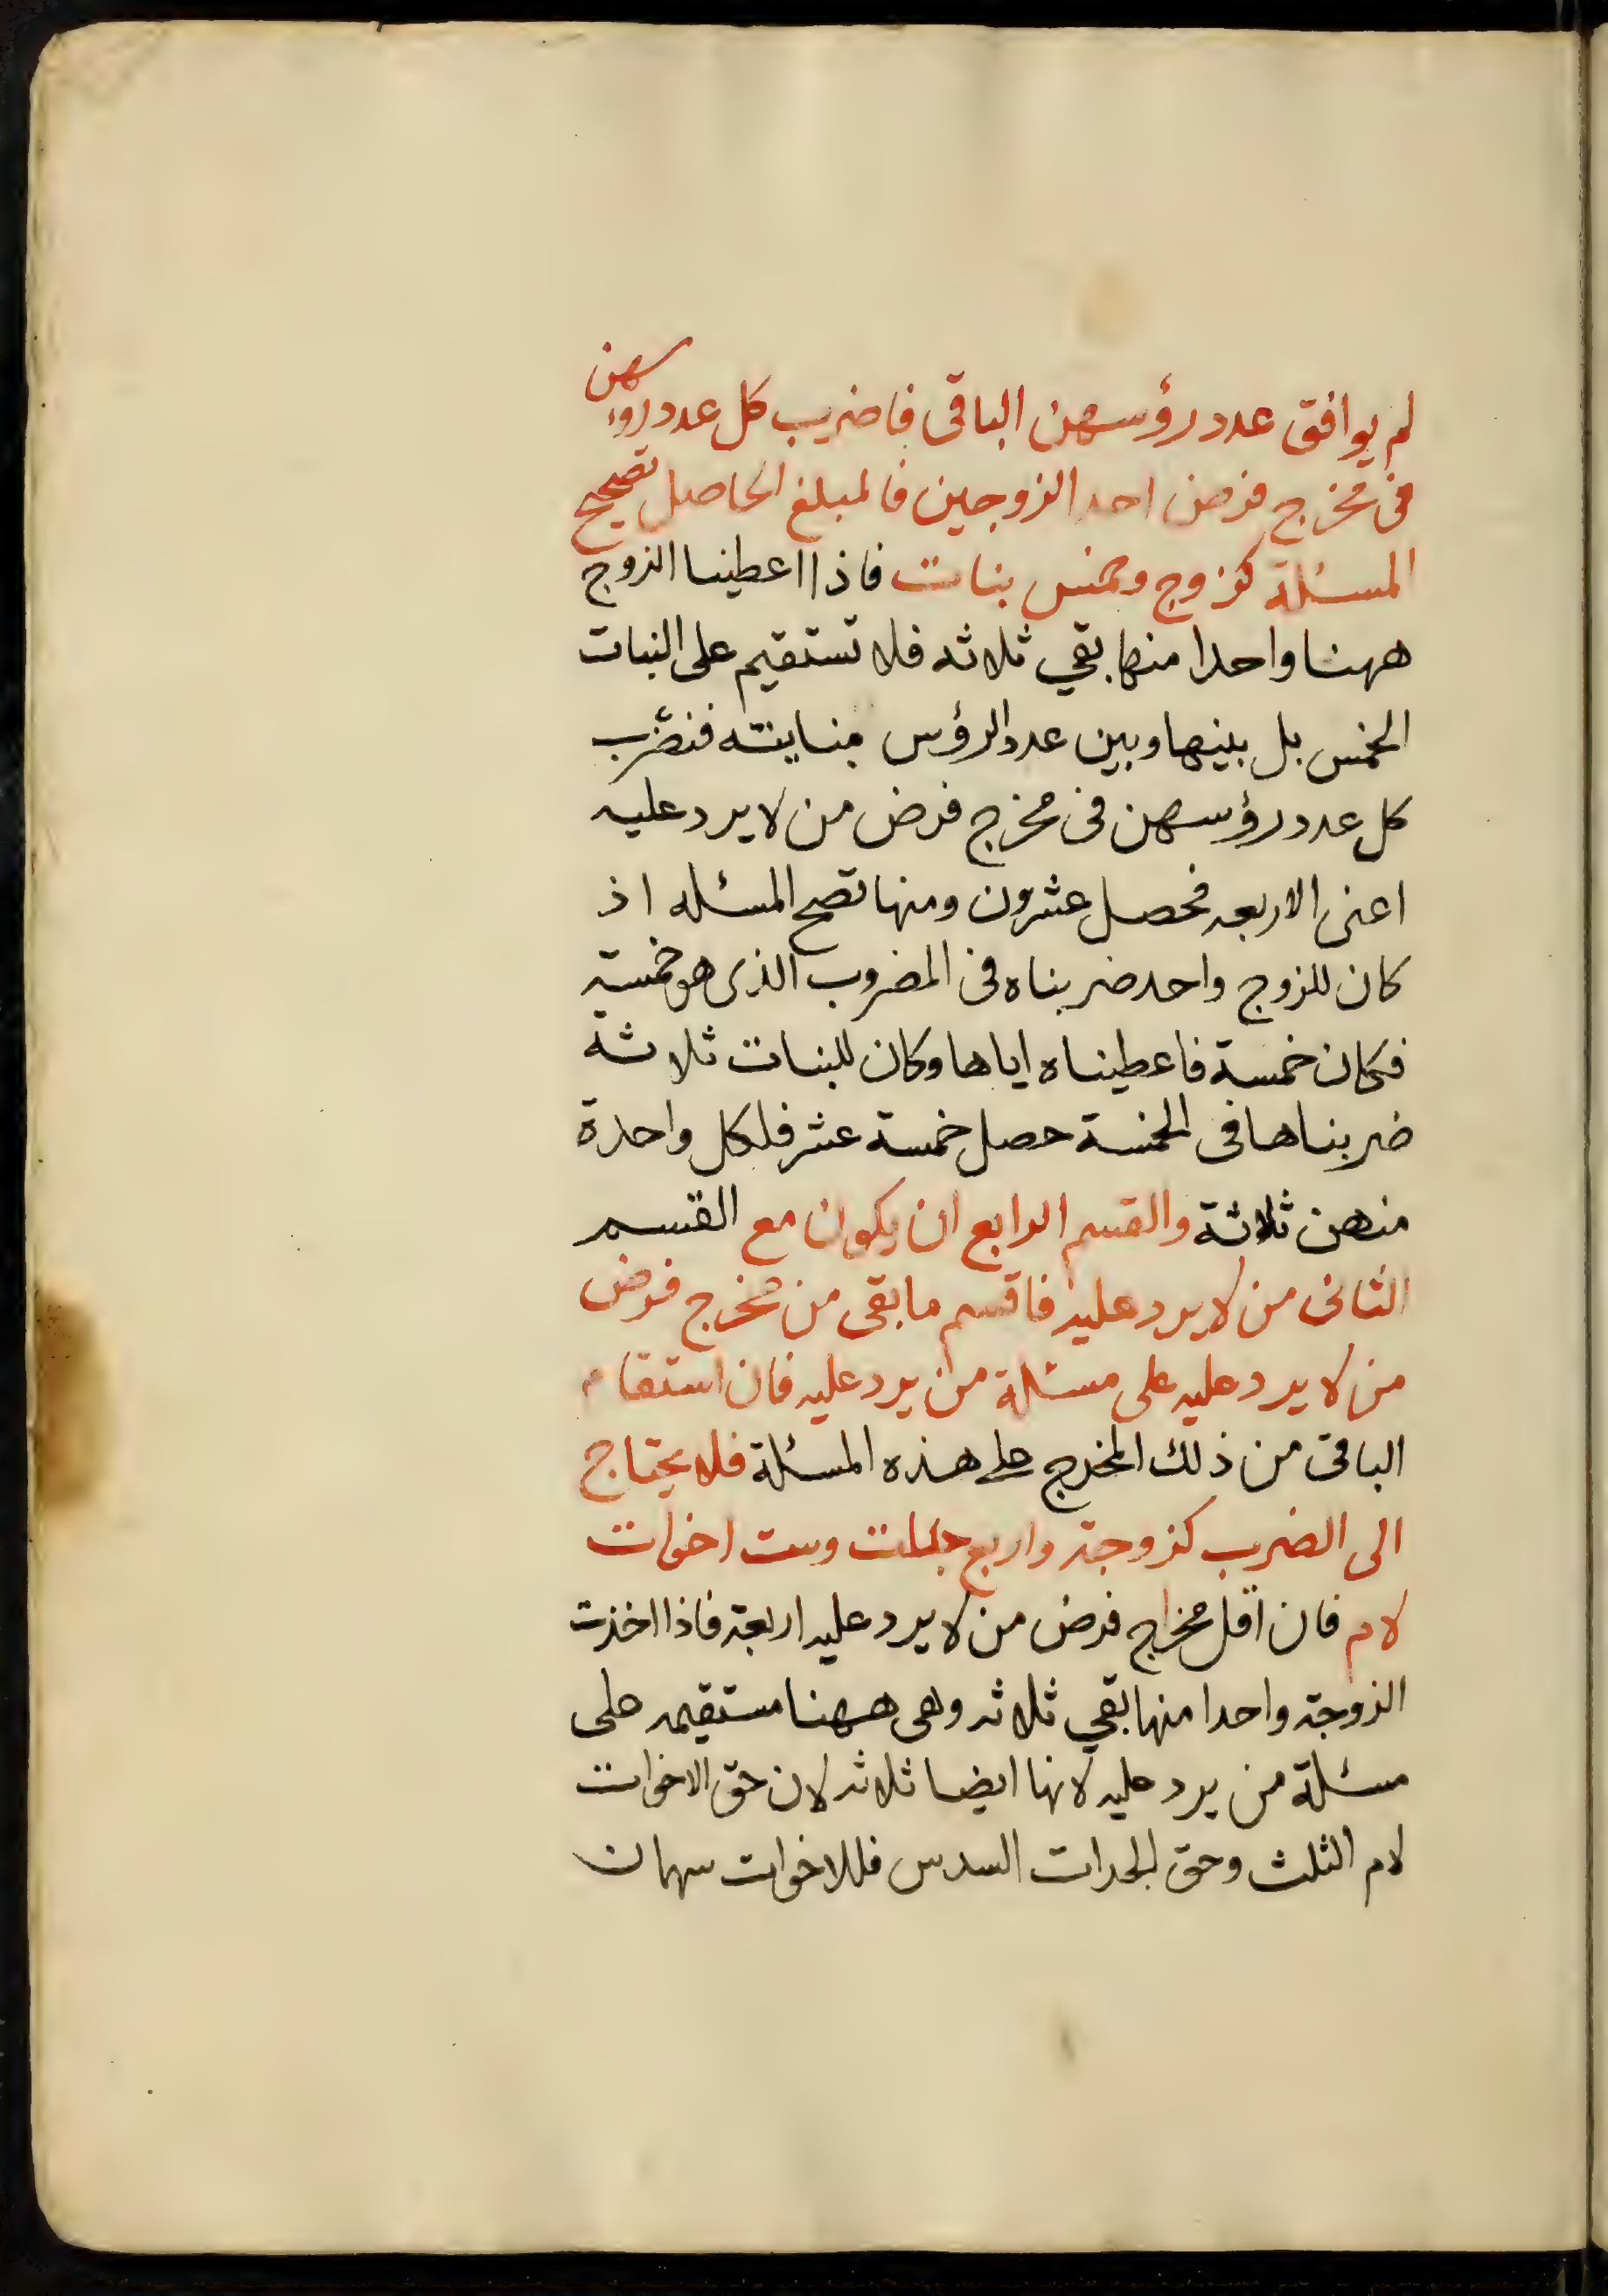 لم يوافق عدد رؤسهن الباقى فاضرب كل عدد رؤسهن
فى مخرج فرض احد الزوجين فالمبلغ الحاصل تصحيح
المسئلة كزوج وخمس بنات فاذا اعطينا الزوج
ههنا واحدا منها بقي ثلاثه فلا تستقيم على البنات
الخمس بل بينها وبين عدد الرؤس مباينته فنضرب
كل عدد رؤسهن فى مخرج فرض من لا يرد عليه
اعنى الاربعه فحصل عشرون ومنها تصح المسئله اذ
كان للزوج واحد ضربناه فى المضروب الذى هو خمسته
فكان خمسة فاعطيناه اياها وكان للبنات ثلاثة
ضربناها فى الخمسة حصل خمسة عشر فلكل واحدة
منهن ثلاثة والقسم الرابع ان يكون مع القسم
الثانى من لا يرد عليه فاقسم ما بقى من مخرج فرض
من لا يرد عليه على مسئلة من يرد عليه فان استقام
الباقى من ذلك المخرج على هذه المسئلة فلا يحتاج
الى الضرب كزوجة واربع جدات وست اخوات
لام فان اقل مخراج فرض من لا يرد عليه اربعة فاذا اخذت
الزوجة واحدا منها بقي ثلاثه وهى ههنا مستقيمه على
مسئلة من يرد عليه لانها ايضا ثلاثه لان حق الاخوات
لام الثلث وحق الجدات السدس فللاخوات سهمان